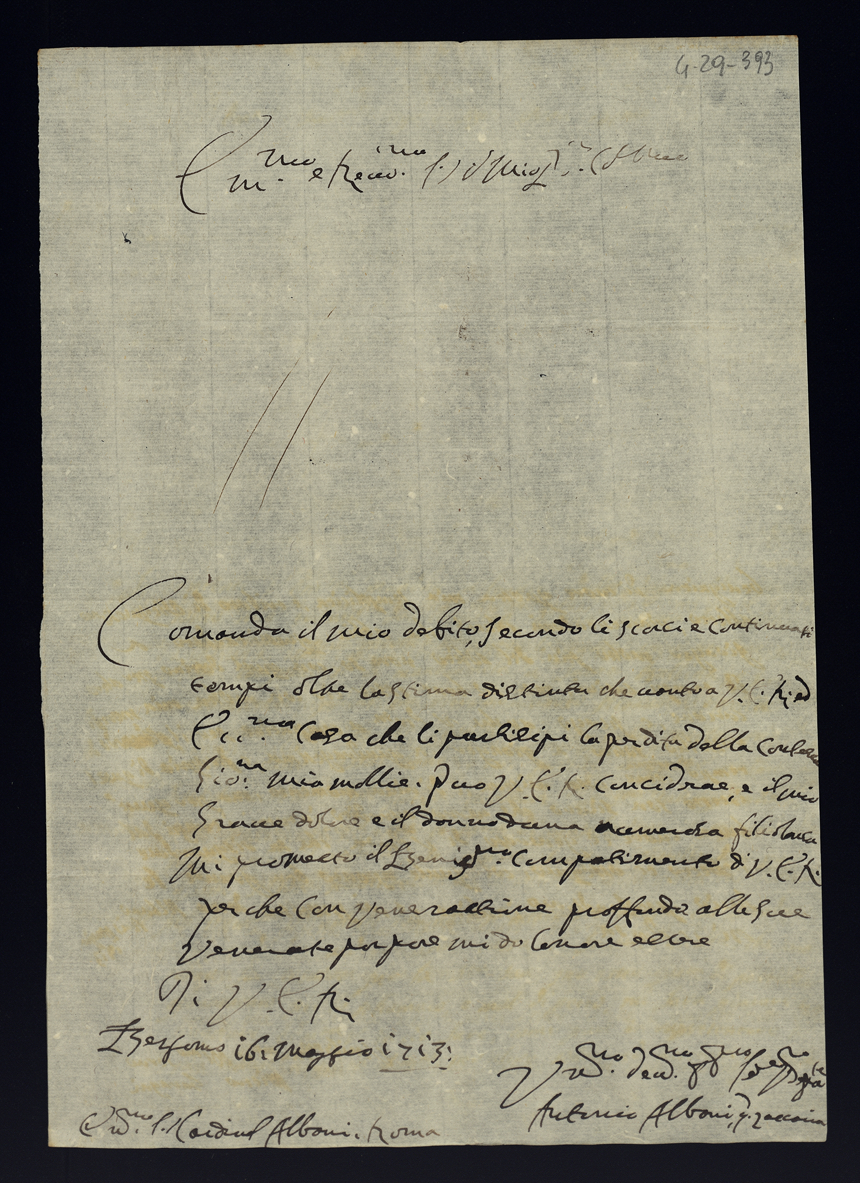 4-29-393
E.mo e Rev.mo
Comanda il mio debito, secondo li scorci e continuati
tempi oltre la stima distinta che conto a V. E. R. ed
Ec.ma Casa che li partisipi la perdita della Contessa
Gio.na mia mollie. può V. E. R. Considrae, e il mio
Grave dolore e il danno d una numerosa filiolanza
Mi prometto il Benig.mo Compatimento di V. E. R.
perche Con Veneratione proffonda alle Sue
Venerate porpore mi do lonore essere
Di V. E. R.
Bergomo 16: Maggio 1713:
V
Antonio Alboni
S. Cardinal Alboni. Roma